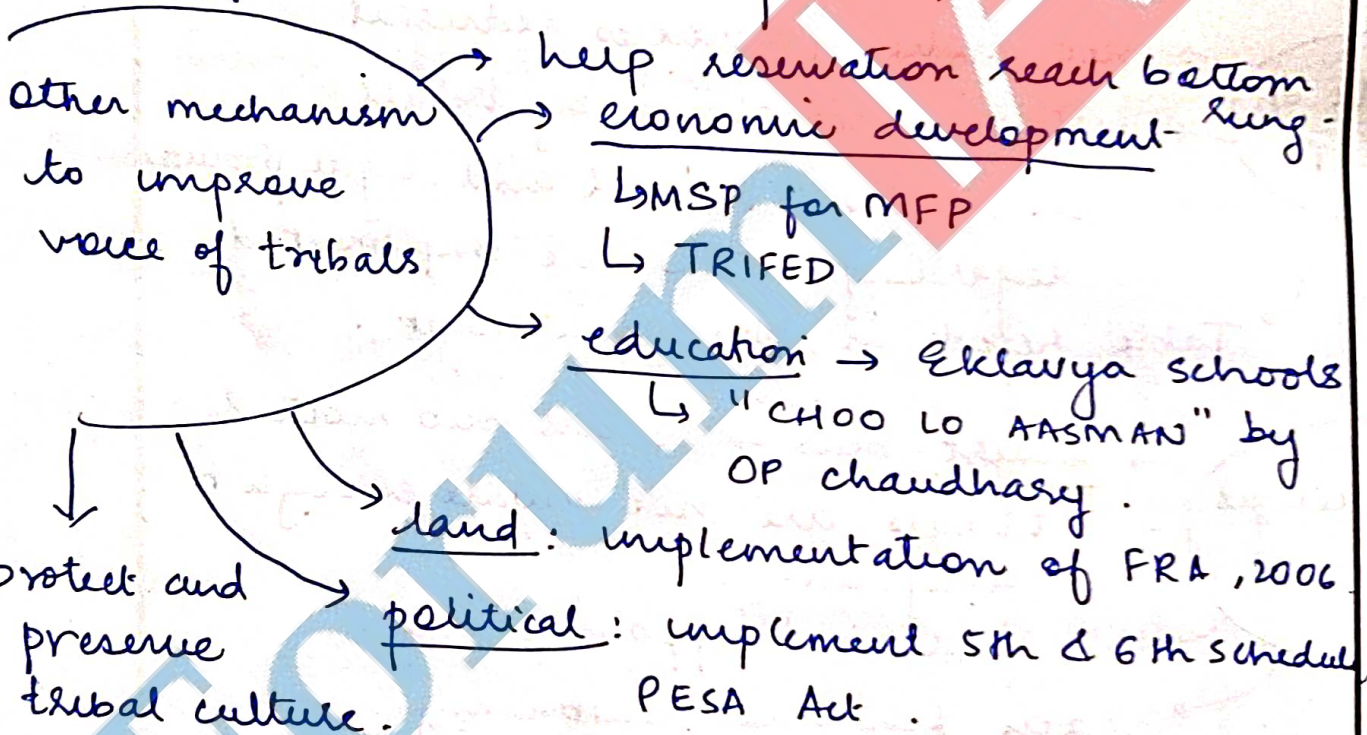 other mechanism
to improve
voice of tribals
help reservation reach bottom
rung.
economic development
↳ MSP for MFP
↳ TRIFED
education → Eklavya schools
↳ "CHOO LO AASMAN" by
OP chaudhary.
land : implementation of FRA, 2006
political : implement 5th & 6th schedul
PESA Act.
protect and
preserve
tribal culture.
Forum